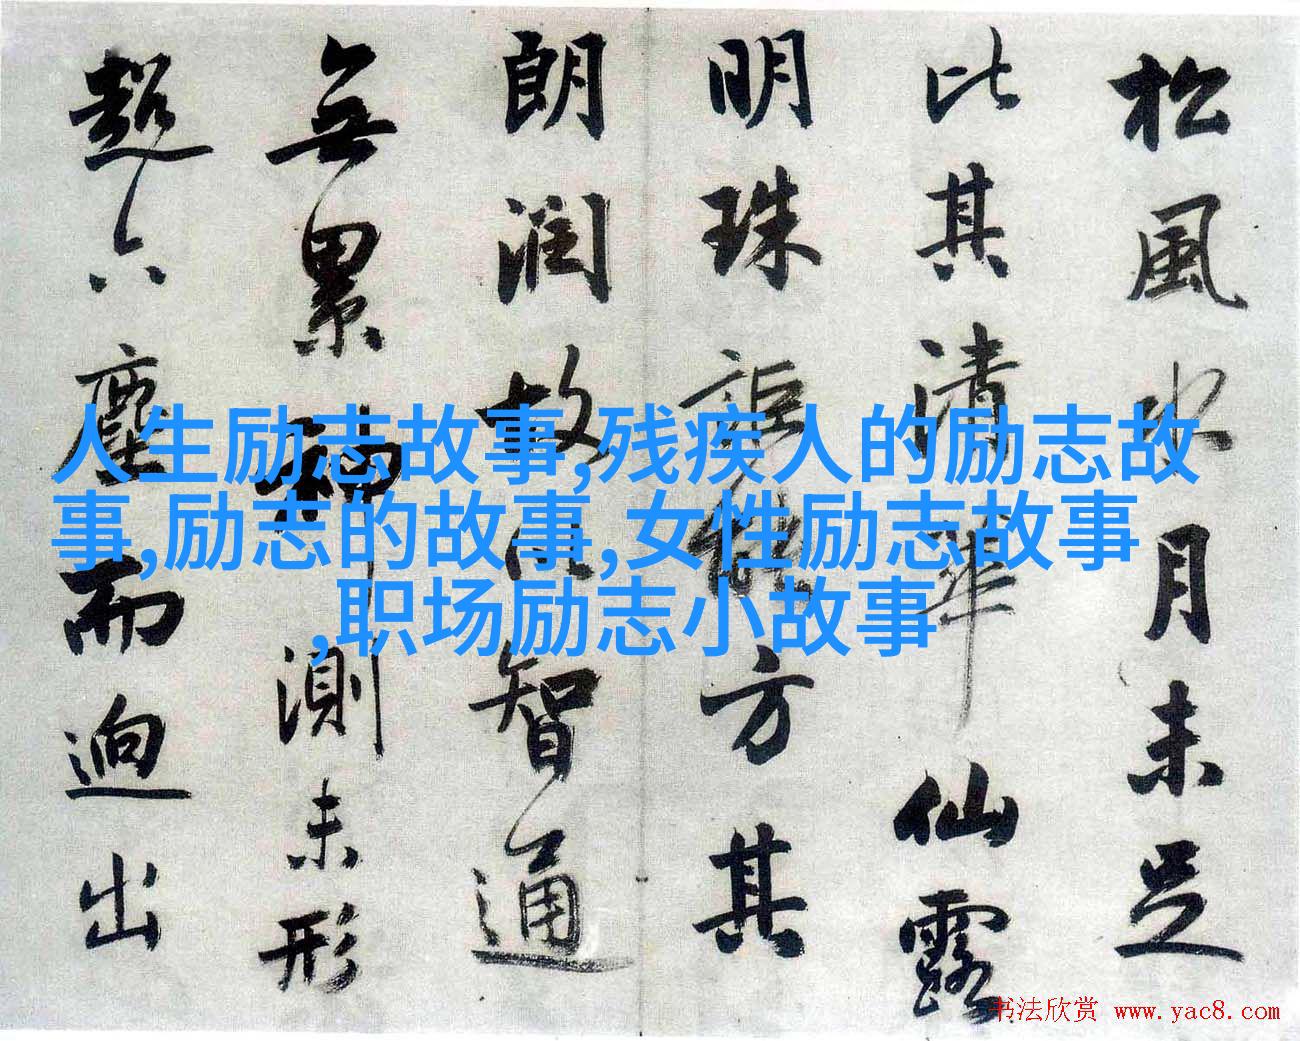 松風水月未足
比其清華仙露
明珠詎能方其
朗潤故以智通
無累神測未形
超六塵而迥出
人生励志故事,残疾人的励志故
事,励志的故事,女性励志故事
,职场励志小故事
书法欣赏 www.yac8.com